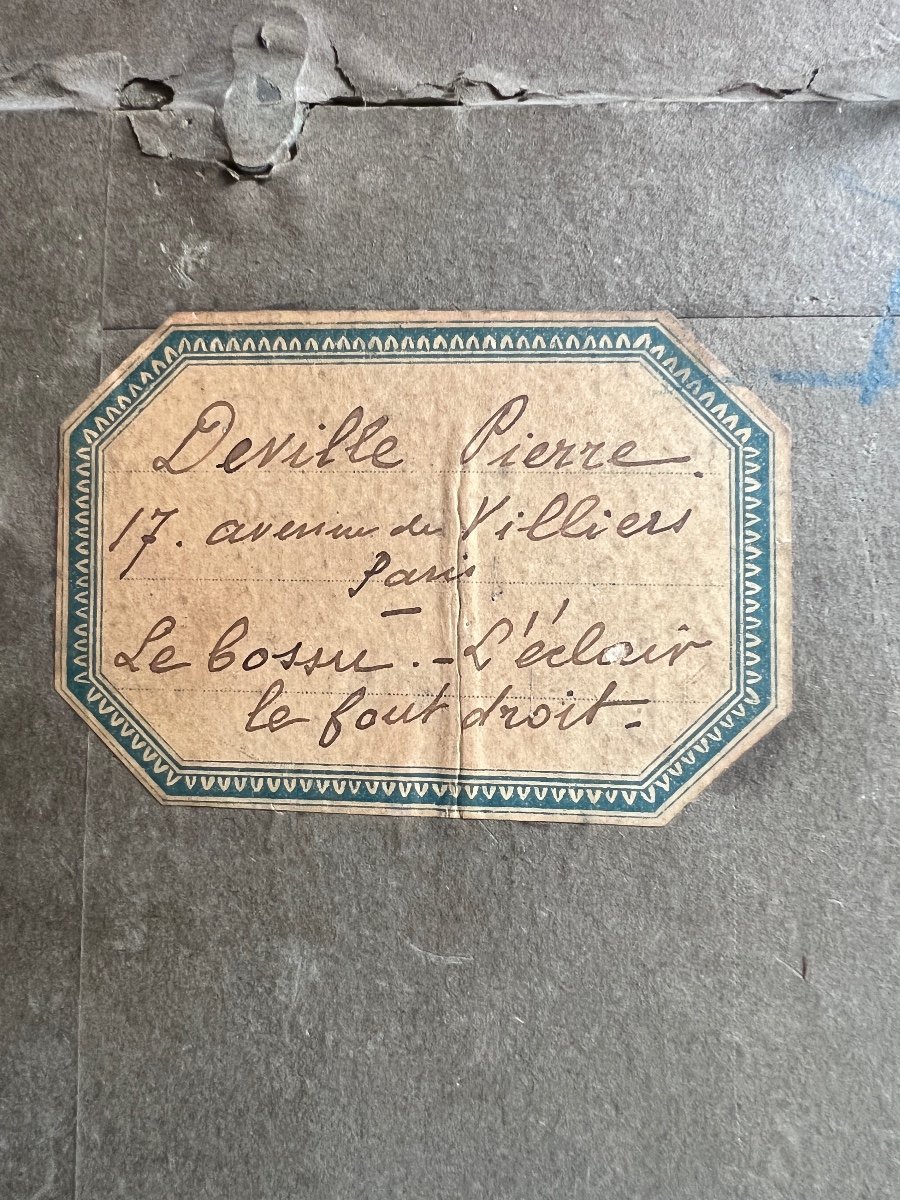 Deville Pierre.
17. avenue de Villiers
Paris
Le bossu. - L'éclair
le fout droit.